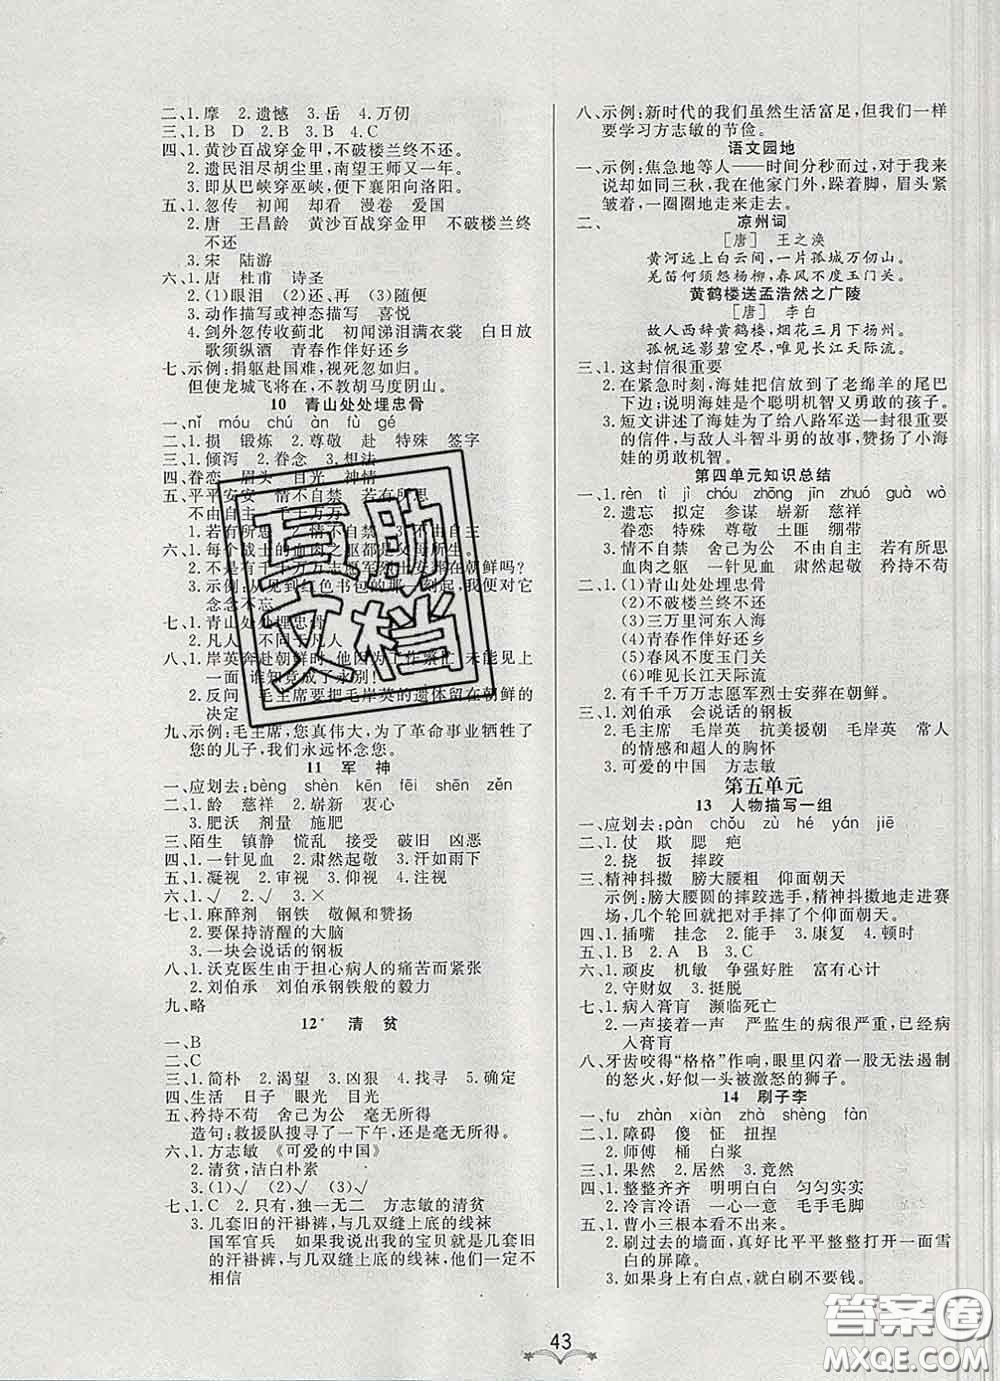 二、1. 摩　2. 遗憾　3. 岳　4. 万仞
三、1. B　D　2. B　3. B　4. C
四、1. 黄沙百战穿金甲,不破楼兰终不还。
2. 遗民泪尽胡尘里,南望王师又一年。
3. 即从巴峡穿巫峡,便下襄阳向洛阳。
五、1. 忽传　初闻　却看　漫卷　爱国
2. 唐　王昌龄　黄沙百战穿金甲　不破楼兰终
不还
3. 宋　陆游
六、1. 唐　杜甫　诗圣
2. (1)眼泪　(2)还、再　(3)便
3. 动作描写或神态描写　喜悦
4. 剑外忽传收蓟北　初闻涕泪满衣裳　白日放
歌须纵酒　青春作伴好还乡
七、示例:捐躯赴国难,视死忽如归。
但使龙城飞将在,不教胡马度阴山。
10　青山处处埋忠骨
一、nǐ　móu　chú　àn　fù　gé
二、1. 损　锻炼　2. 尊敬　赴　特殊　签字
三、1. 倾泻　2. 眷念　3. 想法
四、眷恋　眉头　目光　神情
五、平平安安　情不自禁　若有所思
不由自主　千千万万
1. 若有所思　2. 情不自禁　3. 不由自主
六、1. 每个战士的血肉之躯都是父母所生。
2. 不是有千千万万志愿军烈士安葬在朝鲜吗?
3. 示例:从见到红色书包的那一刻起,我便对它
念念不忘。
七、1. 青山处处埋忠骨
2. 凡人　不同于凡人
八、1. 岸英奔赴朝鲜时,他因为工作繁忙,未能见上
一面,谁知竟成了永别!
2. 反问　毛主席要把毛岸英的遗体留在朝鲜的
决定
九、示例:毛主席,您真伟大,为了革命事业牺牲了
您的儿子,我们永远怀念您。
11　军　神
一、应划去:bèng　shèn　kēn　fēi　shēn　zěn
二、1. 龄　慈祥　2. 崭新　衷心
3. 肥沃　剂量　施肥
三、陌生　镇静　慌乱　接受　破旧　凶恶
四、1. 一针见血　2. 肃然起敬　3. 汗如雨下
五、1. 凝视　2. 审视　3. 俯视　4. 注视
六、1. √　2. √　3. ×
七、1. 麻醉剂　钢铁　敬佩和赞扬
2. 要保持清醒的大脑
3. 一块会说话的钢板
八、1. 沃克医生由于担心病人的痛苦而紧张
2. 刘伯承　刘伯承钢铁般的毅力
九、略
12*　清　贫
一、B
二、C
三、1. 简朴　2. 渴望　3. 凶狠　4. 找寻　5. 确定
四、生活　日子　眼光　目光
五、矜持不苟　舍己为公　毫无所得
造句:救援队搜寻了一下午,还是毫无所得。
六、1. 方志敏　《可爱的中国》
2. 清贫,洁白朴素
3. (1)√　(3)√
七、1. C　2. 只有,独一无二　方志敏的清贫
3. 几套旧的汗褂裤,与几双缝上底的线袜
国军官兵　如果我说出我的宝贝就是几套旧
的汗褂裤,与几双缝上底的线袜,他们一定不
相信
八、示例:新时代的我们虽然生活富足,但我们一样
要学习方志敏的节俭。
语文园地
一、示例:焦急地等人——时间分秒而过,对于我来
说却如同三秋,我在他家门外,跺着脚,眉头紧
皱着,一圈圈地走来走去。
二、　凉州词
[唐]　王之涣
黄河远上白云间,一片孤城万仞山。
羌笛何须怨杨柳,春风不度玉门关。
黄鹤楼送孟浩然之广陵
[唐]　李白
故人西辞黄鹤楼,烟花三月下扬州。
孤帆远影碧空尽,唯见长江天际流。
三、1. 这封信很重要
2. 在紧急时刻,海娃把信放到了老绵羊的尾巴
下边,说明海娃是个聪明机智又勇敢的孩子。
3. 短文讲述了海娃为了给八路军送一封很重要
的信件,与敌人斗智斗勇的故事,赞扬了小海
娃的勇敢机智。
第四单元知识总结
一、1. rèn　tì　jì　chóu　zhōng　jīn　zhuó　guà　wò
2. 遗忘　拟定　参谋　崭新　慈祥
眷恋　特殊　尊敬　土匪　绷带
3. 情不自禁　舍己为公　不由自主　若有所思
血肉之躯　一针见血　肃然起敬　矜持不苟
二、1. (1)青山处处埋忠骨
(2)不破楼兰终不还
(3)三万里河东入海
(4)青春作伴好还乡
(5)春风不度玉门关
(6)唯见长江天际流
2. 有千千万万志愿军烈士安葬在朝鲜。
三、1. 刘伯承　会说话的钢板
2. 毛主席　毛岸英　抗美援朝　毛岸英　常人
的情感和超人的胸怀
3. 可爱的中国　方志敏
第五单元
13　人物描写一组
一、应划去:pàn　chǒu　zù　hé　yán　jiē
二、1. 仗　欺　腮　疤
2. 挠　扳　摔跤
三、精神抖擞　膀大腰粗　仰面朝天
示例:膀大腰圆的摔跤选手,精神抖擞地走进赛
场,几个轮回就把对手摔了个仰面朝天。
四、1. 插嘴　挂念　2. 能手　3. 康复　4. 顿时
五、1. B　2. A　B　3. C
六、1. 顽皮　机敏　争强好胜　富有心计
2. 守财奴　3. 挺脱
七、1. 病入膏肓　濒临死亡
2. 一声接着一声　严监生的病很严重,已经病
入膏肓
八、牙齿咬得“格格”作响,眼里闪着一股无法遏制
的怒火,好似一头被激怒的狮子。
14　刷子李
一、fu　zhàn　xiàn　zhà　shèng　fàn
二、1. 障碍　傻　怔　扭捏
2. 师傅　桶　白浆
三、1. 果然　2. 居然　3. 竟然
四、1. 整整齐齐　明明白白　匀匀实实
2. 冷言冷语　一心一意　毛手毛脚
五、1. 曹小三根本看不出来。
2. 刷过去的墙面,真好比平平整整打开一面雪
白的屏障。
3. 如果身上有白点,就白刷不要钱。
真助
文档
43
答案圈
MXQE.COM